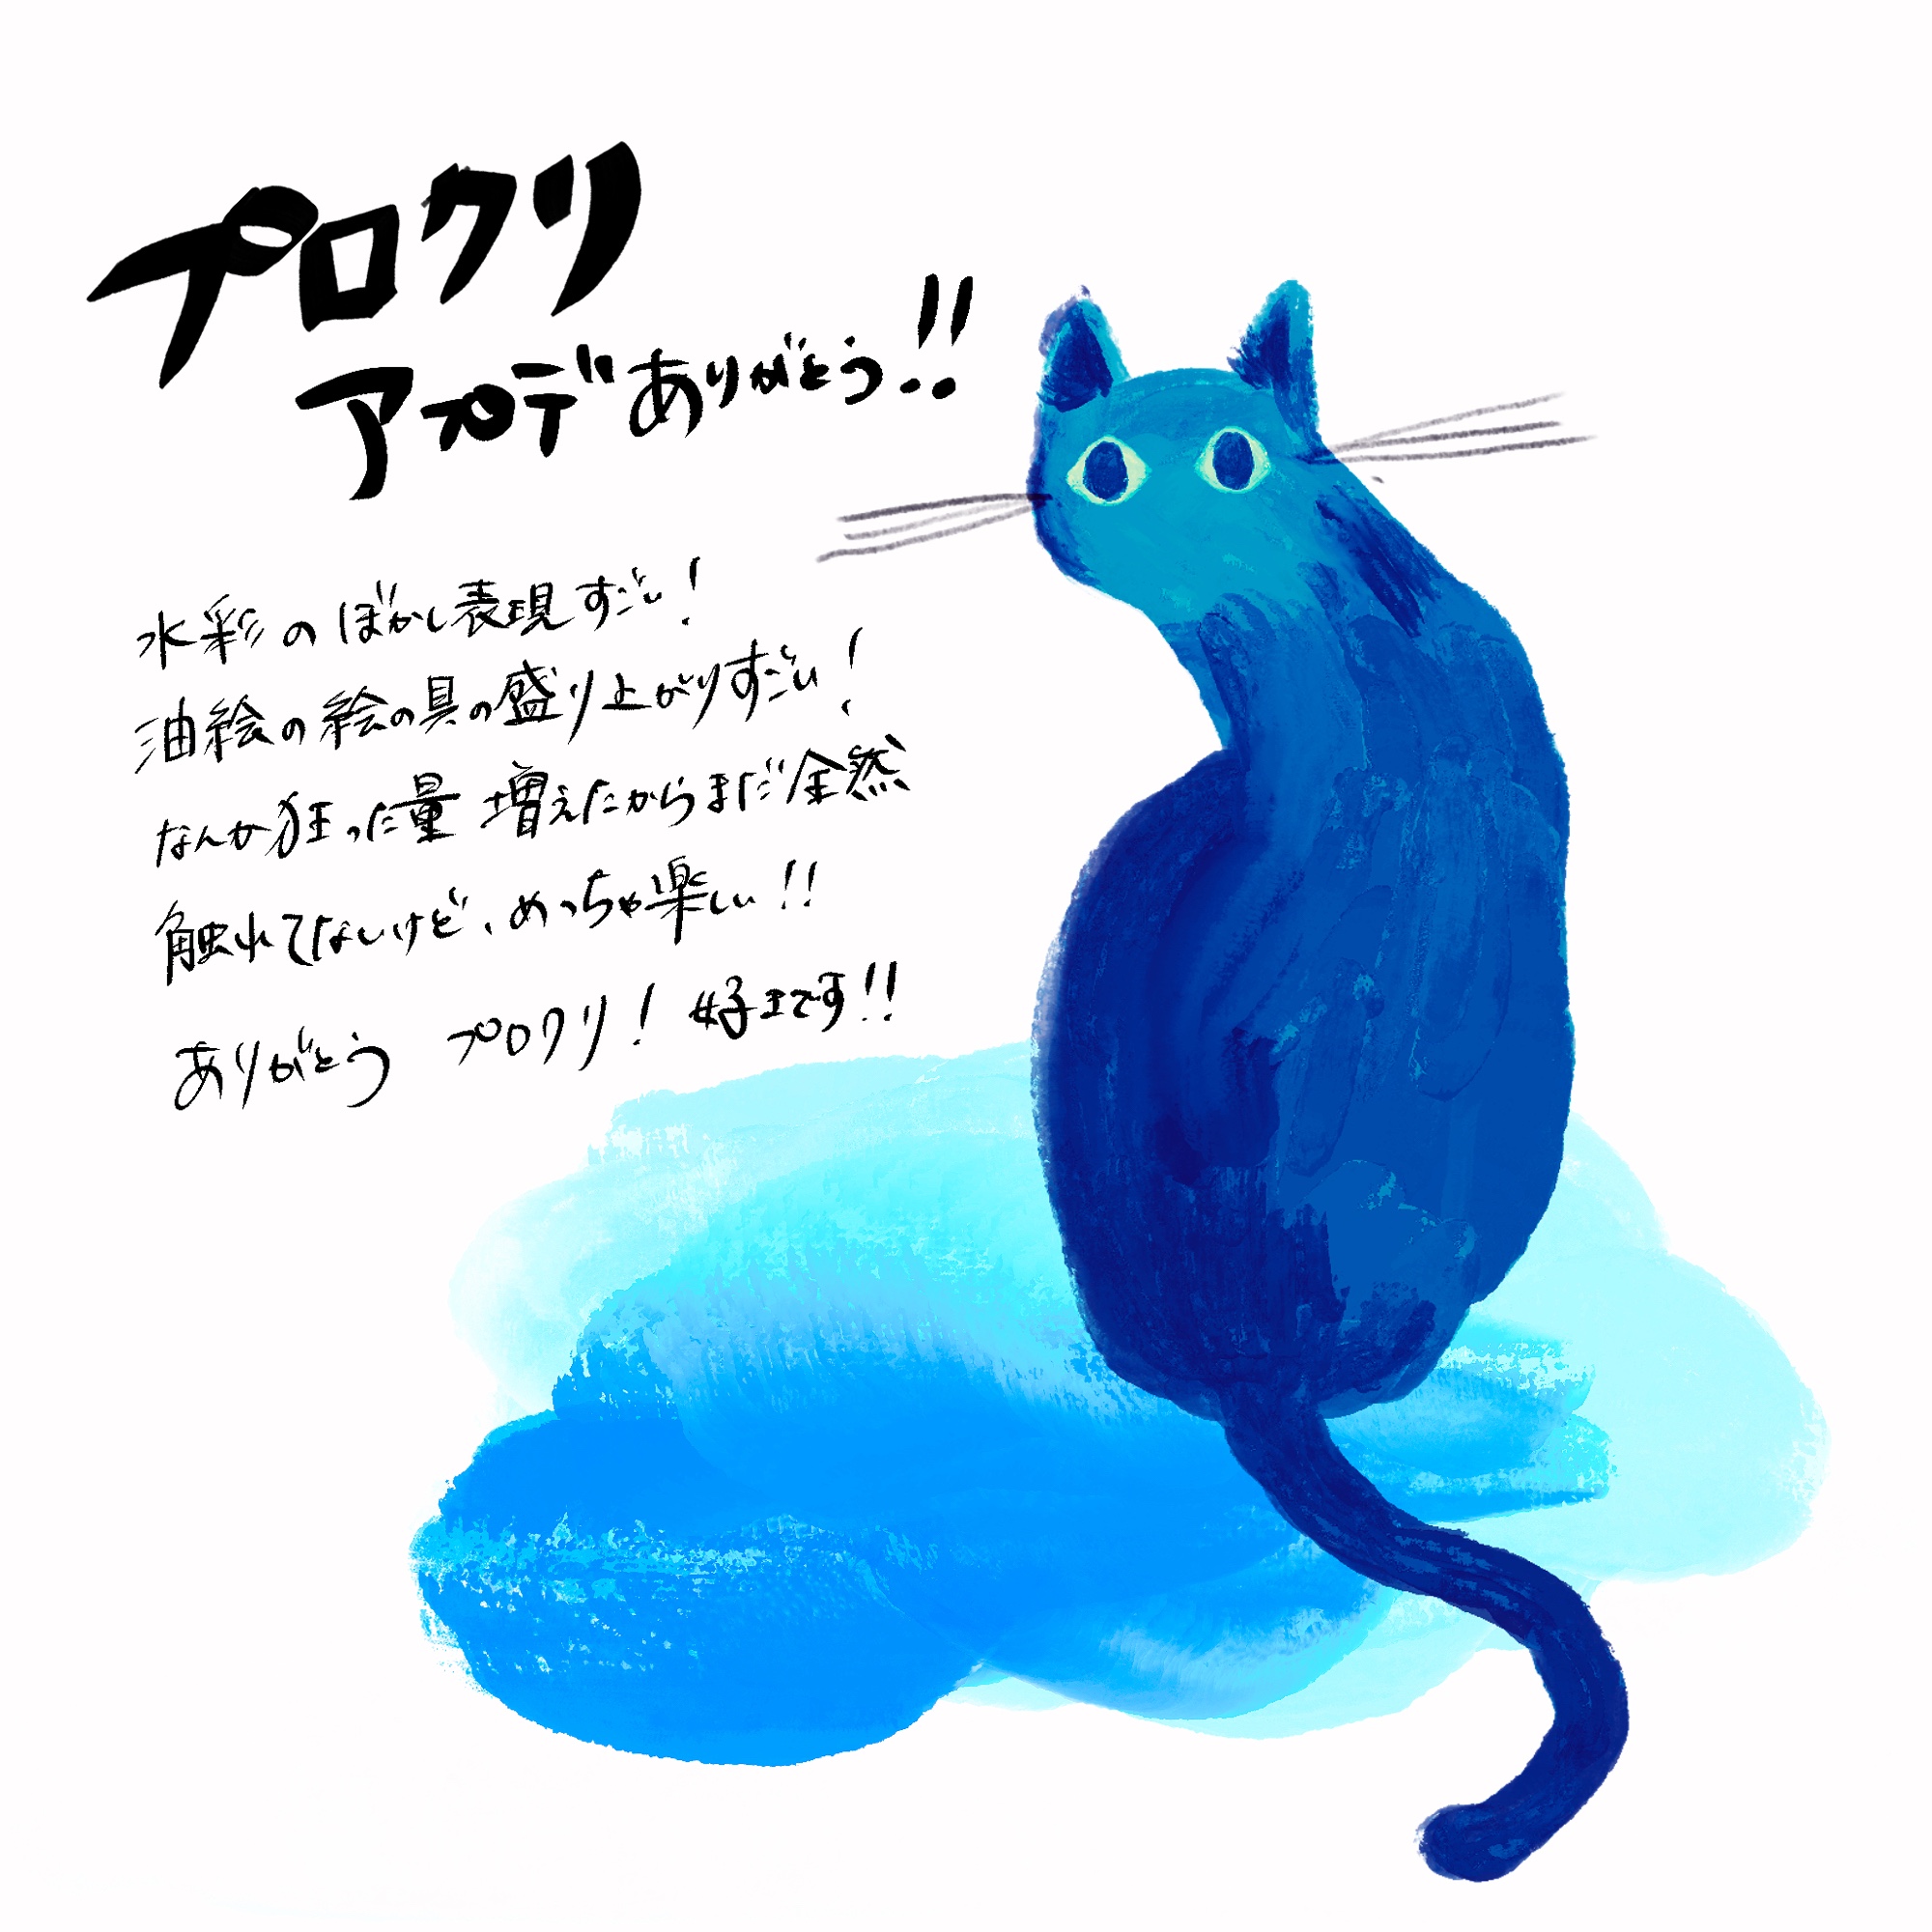 プロクリ
アプデありがとう!!
水彩のぼかし表現すごい!
油絵の絵の具の盛り上がりすごい!
なんか狂った量 増えたからまだ全然
触れてないけど、めっちゃ楽しい!!
ありがとう プロクリ! 好きです!!